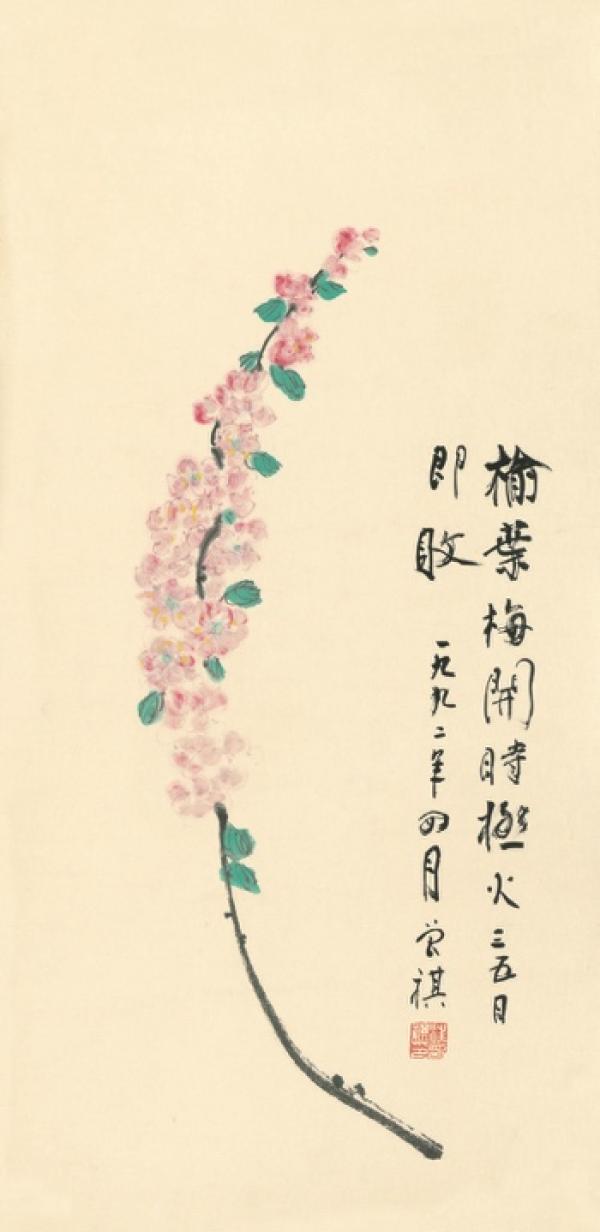 榆葉梅開時極火三五日
即敗 一九九二年四月 曾祺